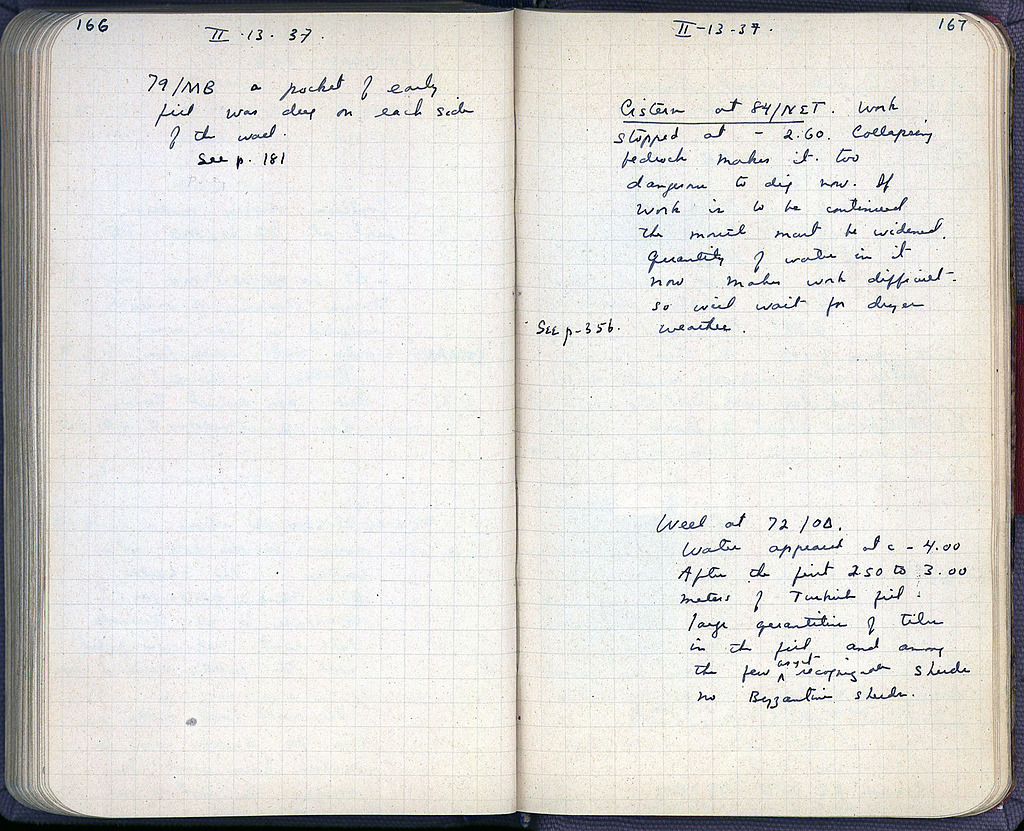 166
II · 13 · 37.
79/MB a pocket of early
fill was dug on each side
of the well.
See p. 181
167
II-13-37.
Cistern at 84/NET. Work
stopped at - 2.60. Collapsing
bedrock makes it too
dangerous to dig now. If
work is to be continued
the mouth must be widened.
Quantity of water in it
now makes work difficult-
so will wait for dryer
See p-356. weather.
Well at 72/OD.
Water appeared at c - 4.00
After the first 2.50 to 3.00
meters of Turkish fill
large quantities of tiles
in the fill and among
the few as yet recognizable sherds
no Byzantine sherds.